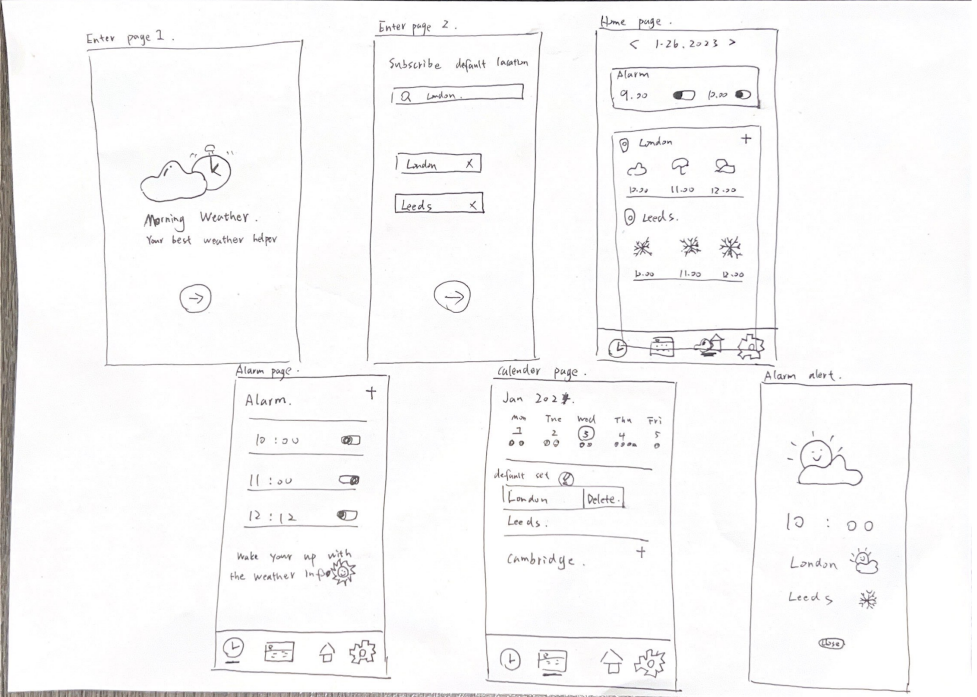 Enter page 1.
Morning Weather.
Your best weather helper
Enter page 2.
Subscribe default location
London.
London X
Leeds X
Home page.
< 1.26.2023 >
Alarm
9.00 10.00
London +
10.00 11.00 12.00
Leeds.
10.00 11.00 12.00
Alarm page.
Alarm. +
10:00
11:00
12:12
wake your up with
the weather Info
Calender page.
Jan
Mon Tue Wed Thu Fri
1 2 3 4 5
default set
London Delete.
Leeds.
Cambridge. +
Alarm alert.
10:00
London
Leeds
Close